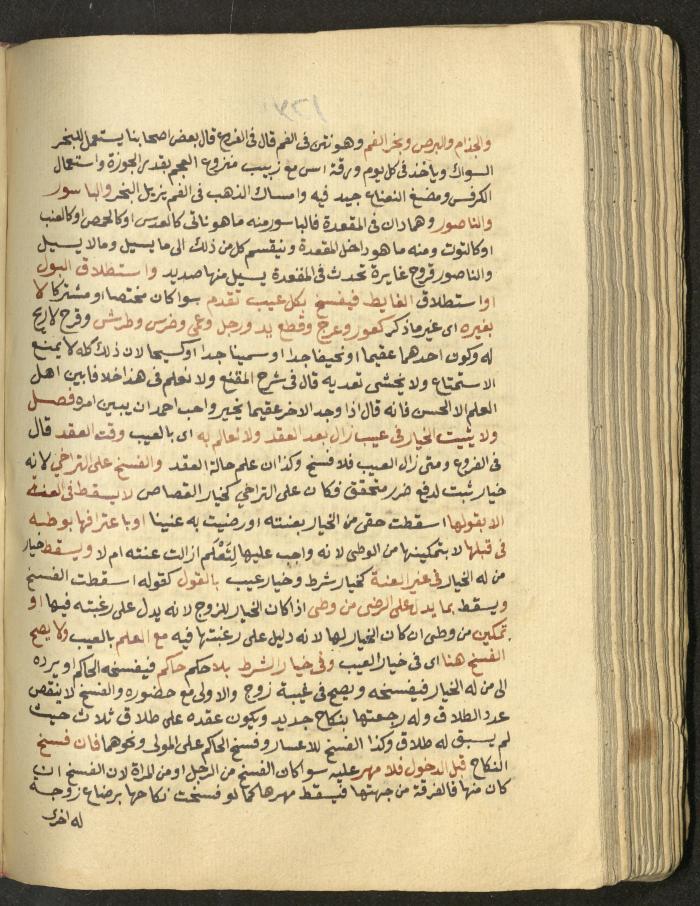 والجذام والبرص وبخر الفم وهو نتن في الفم قال في الفروع قال بعض اصحابنا يستعمل للبخر
السواك وياخذ في كل يوم ورقة اس مع زبيب منزوع العجم بقدر الجوزة واستعمال
الكرفس ومضغ النعناع جيد فيه وامساك الذهب في الفم يزيل البخر والباسور
والناصور وهما دان في المقعدة فالباسور منه ما هو ناتي كالعدس او كالحمص او كالعنب
او كالتوت ومنه ما هو داخل المقعدة وينقسم كل من ذلك الى ما يسيل وما لا يسيل
والناصور قروح غايرة تحدث في المقعدة يسيل منها صديد واستطلاق البول
او استطلاق الغايط فيفسخ بكل عيب تقدم سوا كان مختصا او مشتركا لا
بغيره اى غير ما ذكر كعور وعرج وقطع يد ورجل وعمى وخرس وطرش وقرع لا ريح
له وكون احدهما عقيما او نحيفا جدا او سمينا جدا او كسيحا لان ذلك كله لا يمنع
الاستمتاع ولا يخشى تعديه قال في شرح المقنع ولا نعلم في هذا خلافا بين اهل
العلم الا الحسن فانه قال اذا وجد الاخر عقيما يخير واحب احمد ان يبين امره فصل
ولا يثبت الخيار في عيب زال بعد العقد ولا لعالم به اى بالعيب وقت العقد قال
في الفروع ومتى زال العيب فلا فسخ وكذا ان علم حالة العقد والفسخ على التراخي لانه
خيار ثبت لدفع ضرر متحقق فكان على التراخي كخيار القصاص لا يسقط في العنة
الا بقولها اسقطت حقي من الخيار بعنته او رضيت به عنينا او باعترافها بوطئه
في قبلها لا بتمكينها من الوطى لانه واجب عليها لتعلم ازالت عنته ام لا ويسقط خيار
من له الخيار في غير العنة كخيار شرط وخيار عيب بالقول كقوله اسقطت الفسخ
ويسقط بما يدل على الرضى من وطى اذا كان الخيار للزوج لانه يدل على رغبته فيها او
تمكين من وطى ان كان الخيار لها لانه دليل على رغبتها فيه مع العلم بالعيب ولا يصح
الفسخ هنا اى في خيار العيب وفي خيار الشرط بلا حكم حاكم فيفسخه الحاكم او يرده
الى من له الخيار فيفسخه ويصح في غيبة زوج والاولى مع حضوره والفسخ لا ينقص
عدد الطلاق وله رجعتها بنكاح جديد ويكون عقده على طلاق ثلاث حيث
لم يسبق له طلاق وكذا الفسخ للاعسار وفسخ الحاكم على المولى ونحوهما فان فسخ
النكاح قبل الدخول فلا مهر عليه سوا كان الفسخ من الرجل او من المراة لان الفسخ ان
كان منها فالفرقة من جهتها فيسقط مهرها كما لو فسخت نكاحها برضاع زوجة
له اخرى